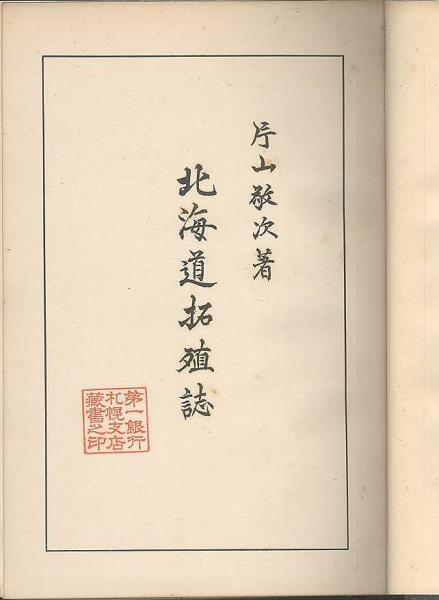 片山敬次著
北海道拓殖誌
第一銀行
札幌支店
藏書之印